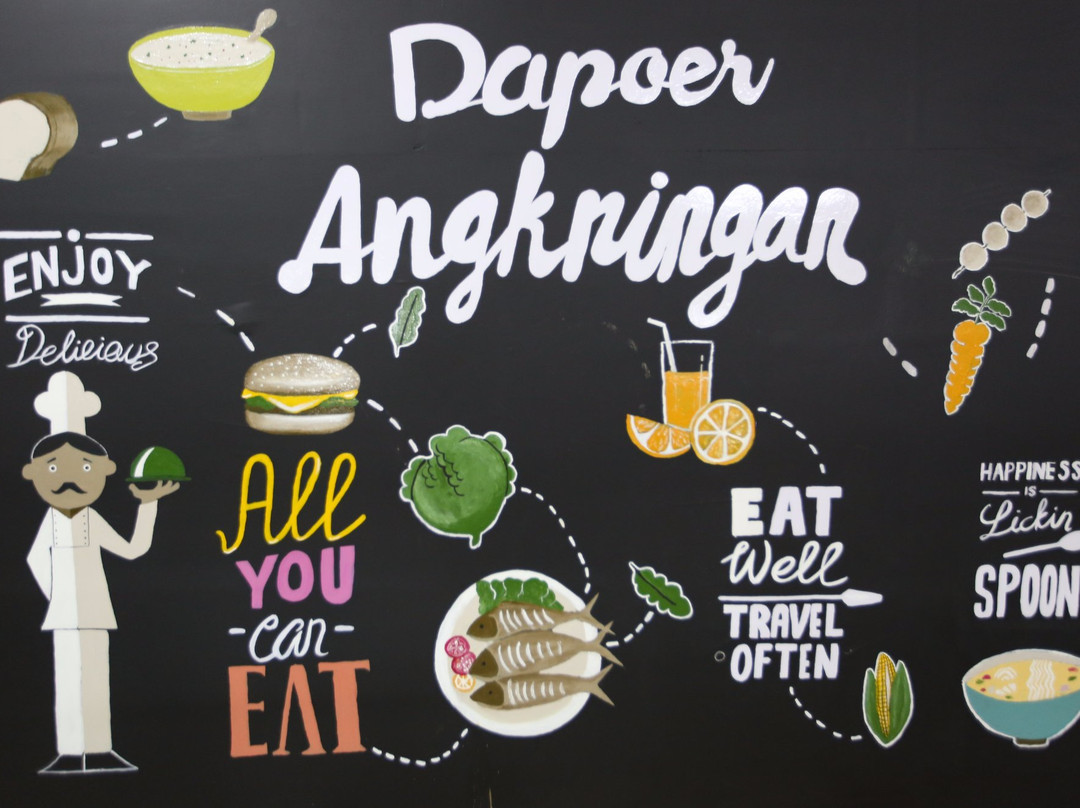 Dapoer
Angkringan
ENJOY
Delicious
All
YOU
-can-
EAT
EAT
Well
TRAVEL
OFTEN
HAPPINESS
IS
Lickin
SPOON